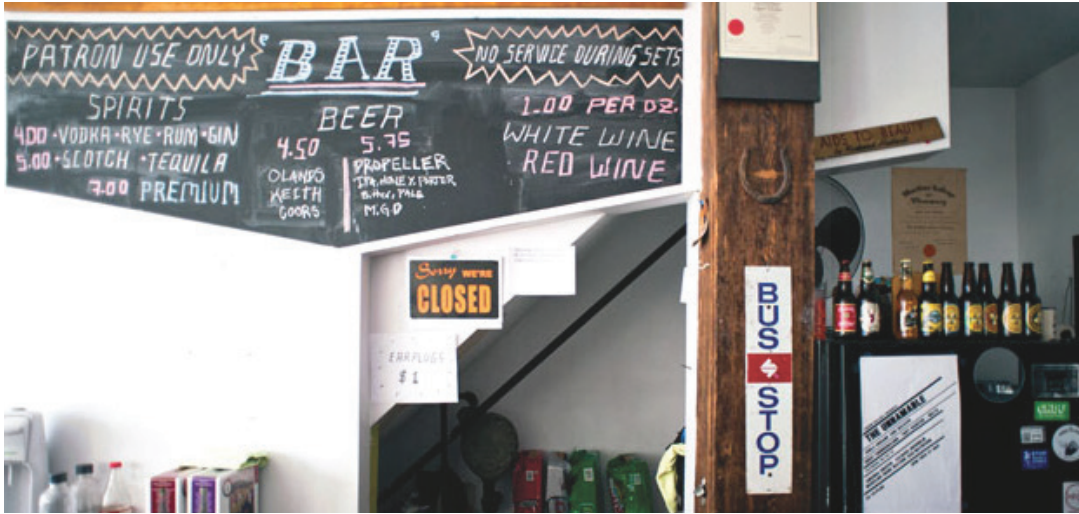 PATRON USE ONLY
"BAR"
NO SERVICE DURING SETS
SPIRITS
4.00 •VODKA •RYE •RUM •GIN
5.00 •SCOTCH •TEQUILA
7.00 PREMIUM
BEER
4.50
OLANDS
KEITH
COORS
5.75
PROPELLER
IPA, HONEY, PORTER
Bitter, PALE
M.G.D
1.00 PER OZ.
WHITE WINE
RED WINE
Sorry WE'RE
CLOSED
EARPLUGS
$1
BUS STOP
AIDS TO BEAUTY
THE UNNAMABLE